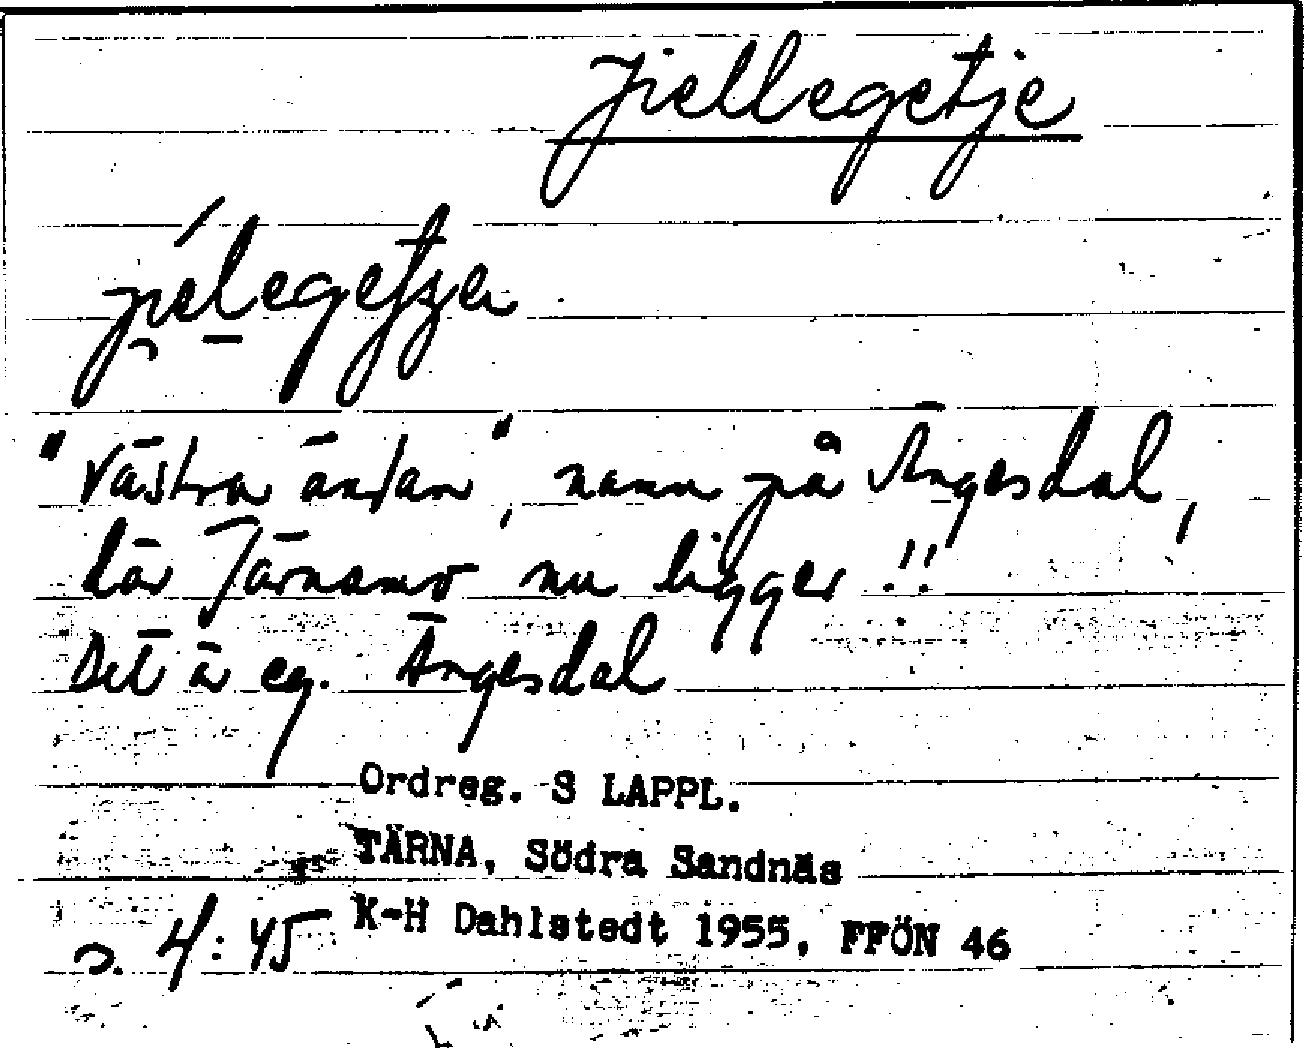 jiellegetje
"Västra ändan", namn på Ängesdal,
där Tärnamo nu ligger!!
Det ä eg. Ängesdal
Ordreg. S LAPPL.
TÄRNA, Södra Sandnäs
4:45 K-H Dahlstedt 1955, FFÖN 46